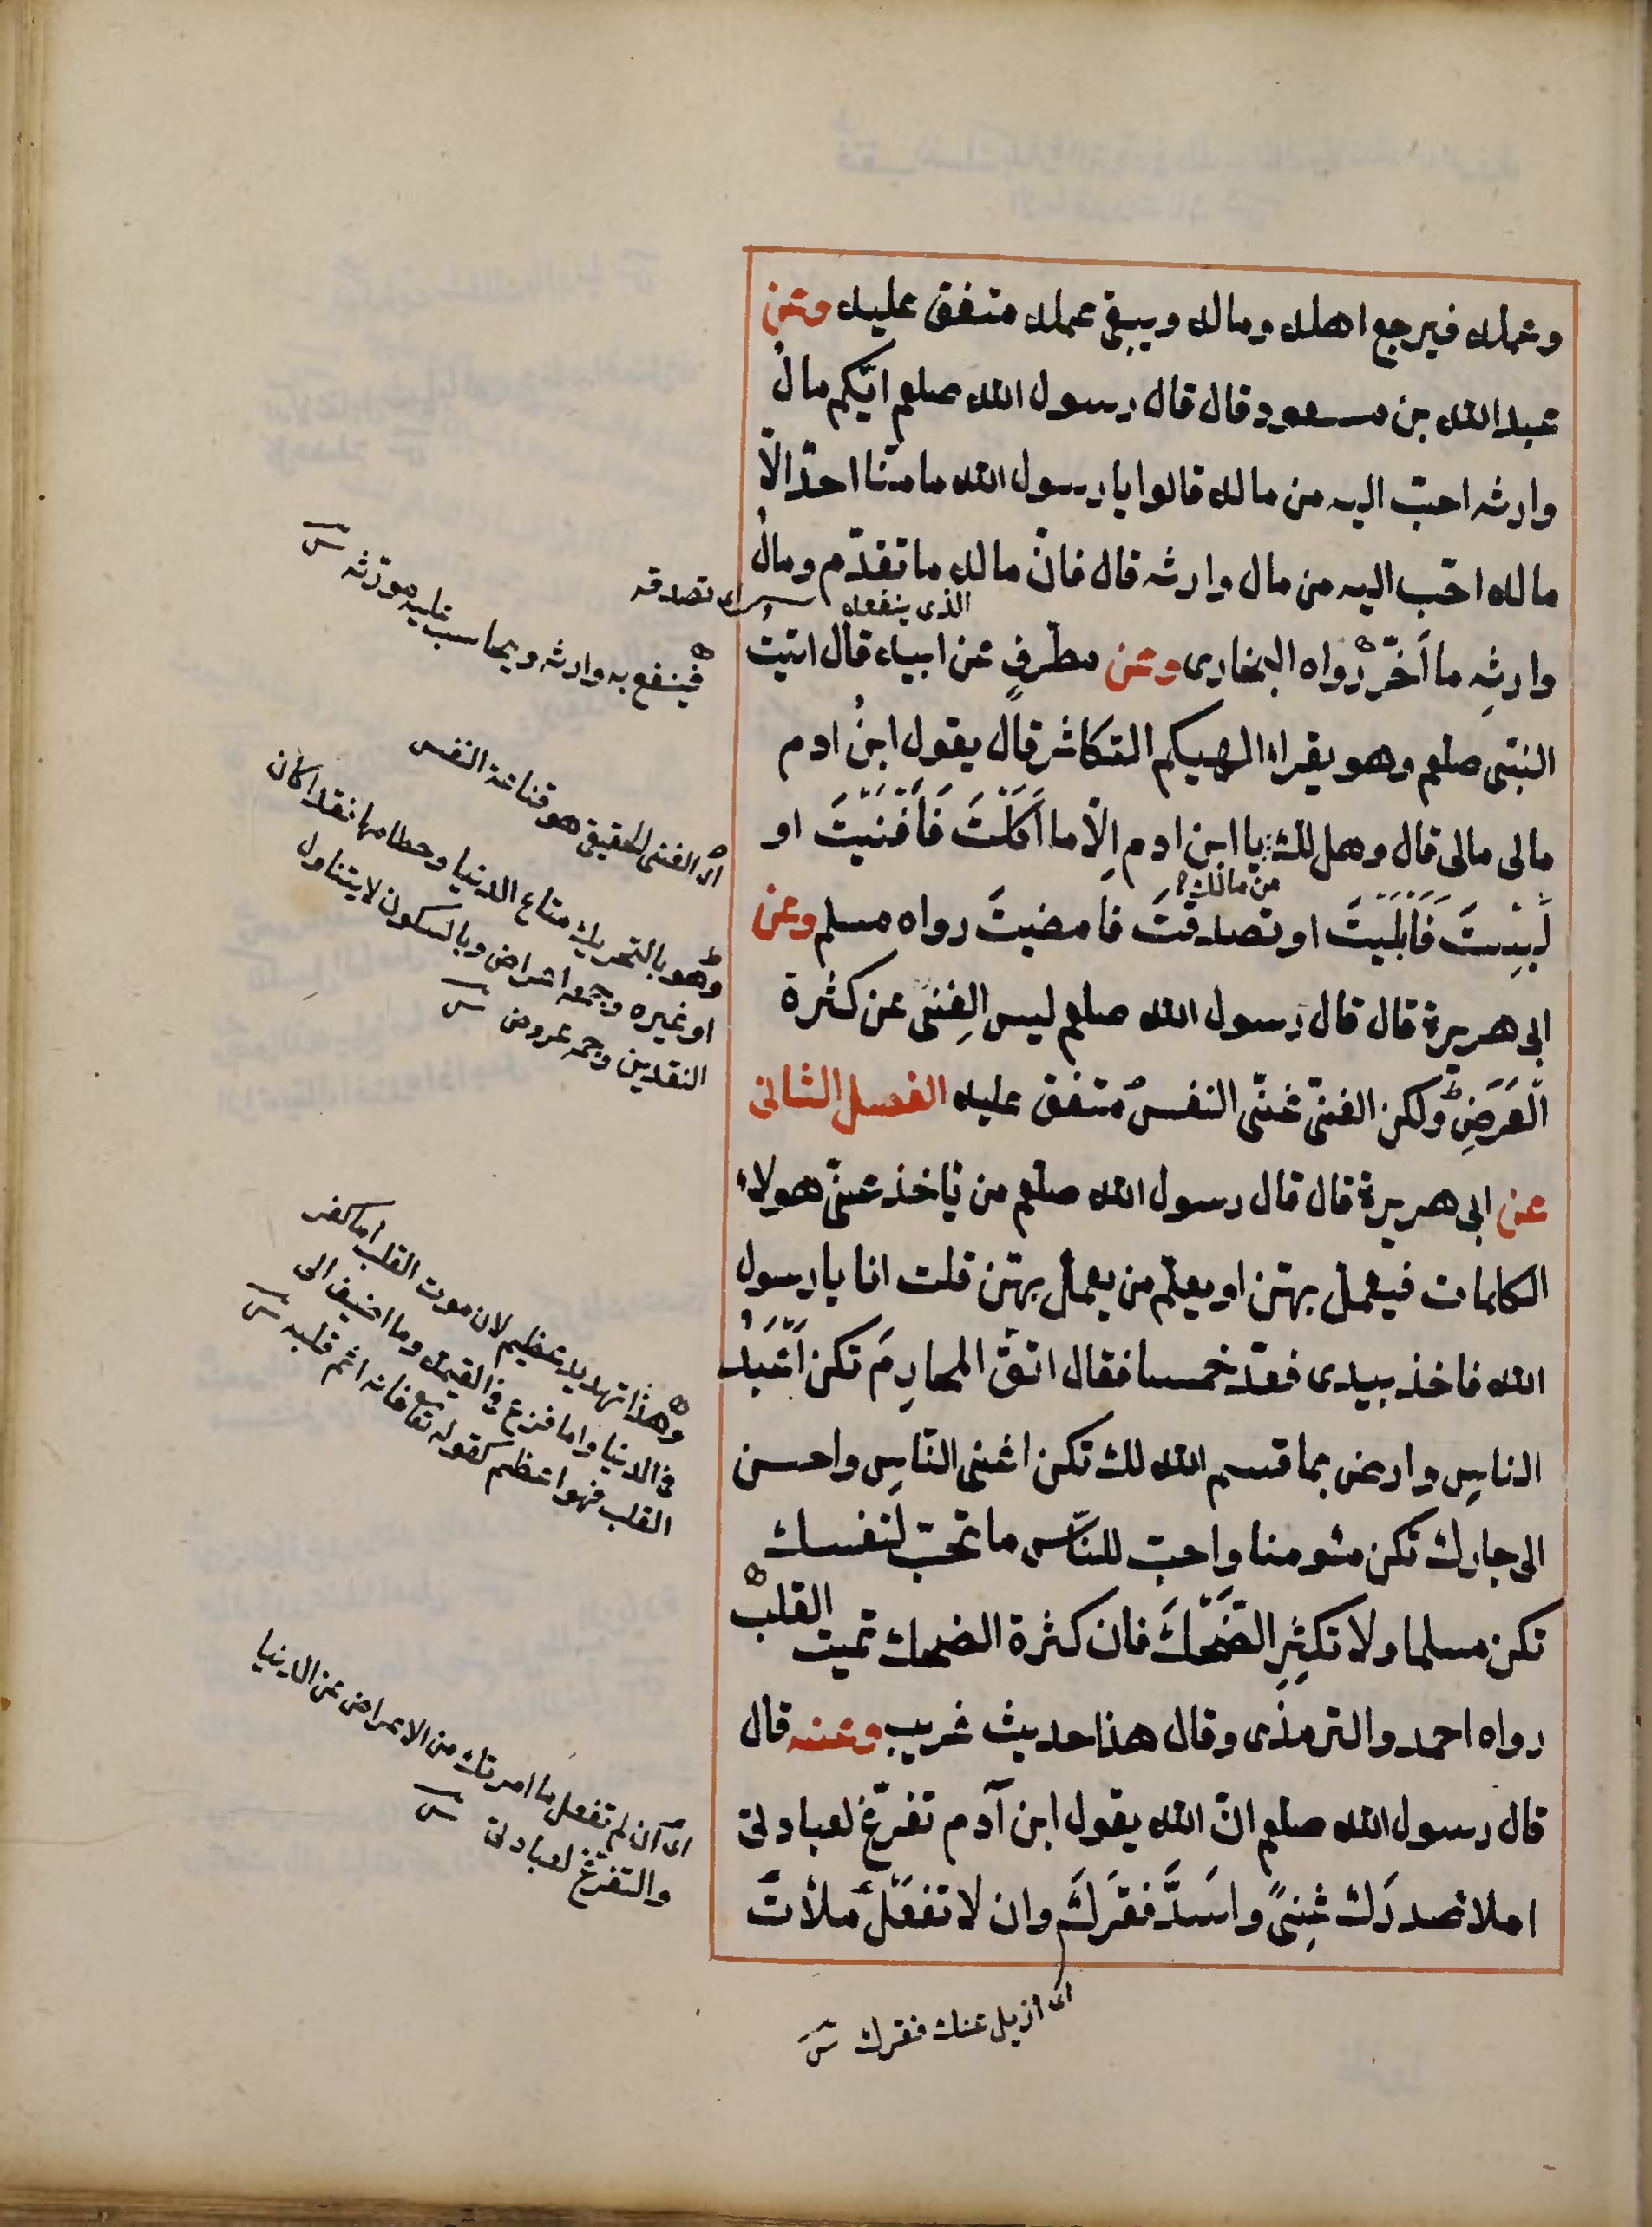 وعمله فيرجع اهله وماله ويبقى عمله متفق عليه وعن
عبد الله بن مسعود قال قال رسول الله صلعم ايّكم مالُ
وارثه احبّ اليه من ماله قالوا يا رسول الله ما منّا احدٌ الّا
ماله احّب اليه من مال وارثه قال فانّ ماله ما تقدّم ومالُ
الذى ينفعه
تصدقه
وارثِه ما اَخّرَ رواه البخارى وعن مطرّفٍ عن ابيه قال اتيت
النبّى صلعم وهو يقراء الهيكم التكاثر قال يقول ابنُ ادم
مالى مالى قال وهل لك يا ابن ادم اِلّا ما اَكَلْتَ فَاَفْنَيْتَ او
من مالك
لَبِسْتَ فَاَبْلَيْتَ او تصدقْتَ فامضيتَ رواه مسلم وعن
ابى هريرة قال قال رسول الله صلعم ليس الغِنىٰ عن كثرة
الْعَرَضِ ولكن الغنىّ غنىّ النفس متفق عليه الفصل الثانى
عن ابى هريرة قال قال رسول الله صلعم من ياخذ عنّى هولاء
الكلمات فيعمل بهنّ او يعلّم من يعمل بهنّ قلت انا يا رسول
الله فاخذ بيدى فعدّ خمسا فقال اتقّ المحارِمَ تكن اَعْبَدُ
الناسِ وارض بما قسم الله لك تكن اغنى النّاسِ واحسن
الى جارك تكن مؤمنا واحبّ للنّاس ما تحبّ لنفسك
تكن مسلما ولا تكثِرِ الضّحْكَ فان كثرة الضحك تميت القلبَ
رواه احمد والترمذى وقال هذا حديث غريب وعنه قال
قال رسول الله صلعم انّ الله يقول ابن آدم تفرّغ لعبادتى
املاء صدرَك غِنىً واسَدَّ فقرَكَ وان لا تفعَلْ مَلأتُ
فينفع به وارثه ويحاسب عليه مورّثه
اى الغنى الحقيقى هو قناعة النفس
وهو بالتحريك متاع الدنيا وحطامها نقدا كان
او غيره وجمعه اعراض وبالسكون لا يتناول
النقدين وجمعه عروض
وهذا تهديد عظيم لان موت القلب اما كفر
فى الدنيا واما فزع فى القيمة وما اضيف الى
القلب فهو اعظم كقوله تعا فانه اثم قلبه
اى ان لم تفعل ما امرتك من الاعراض عن الدنيا
والتفرّغ لعبادتى
اى ازيل عنك فقرك